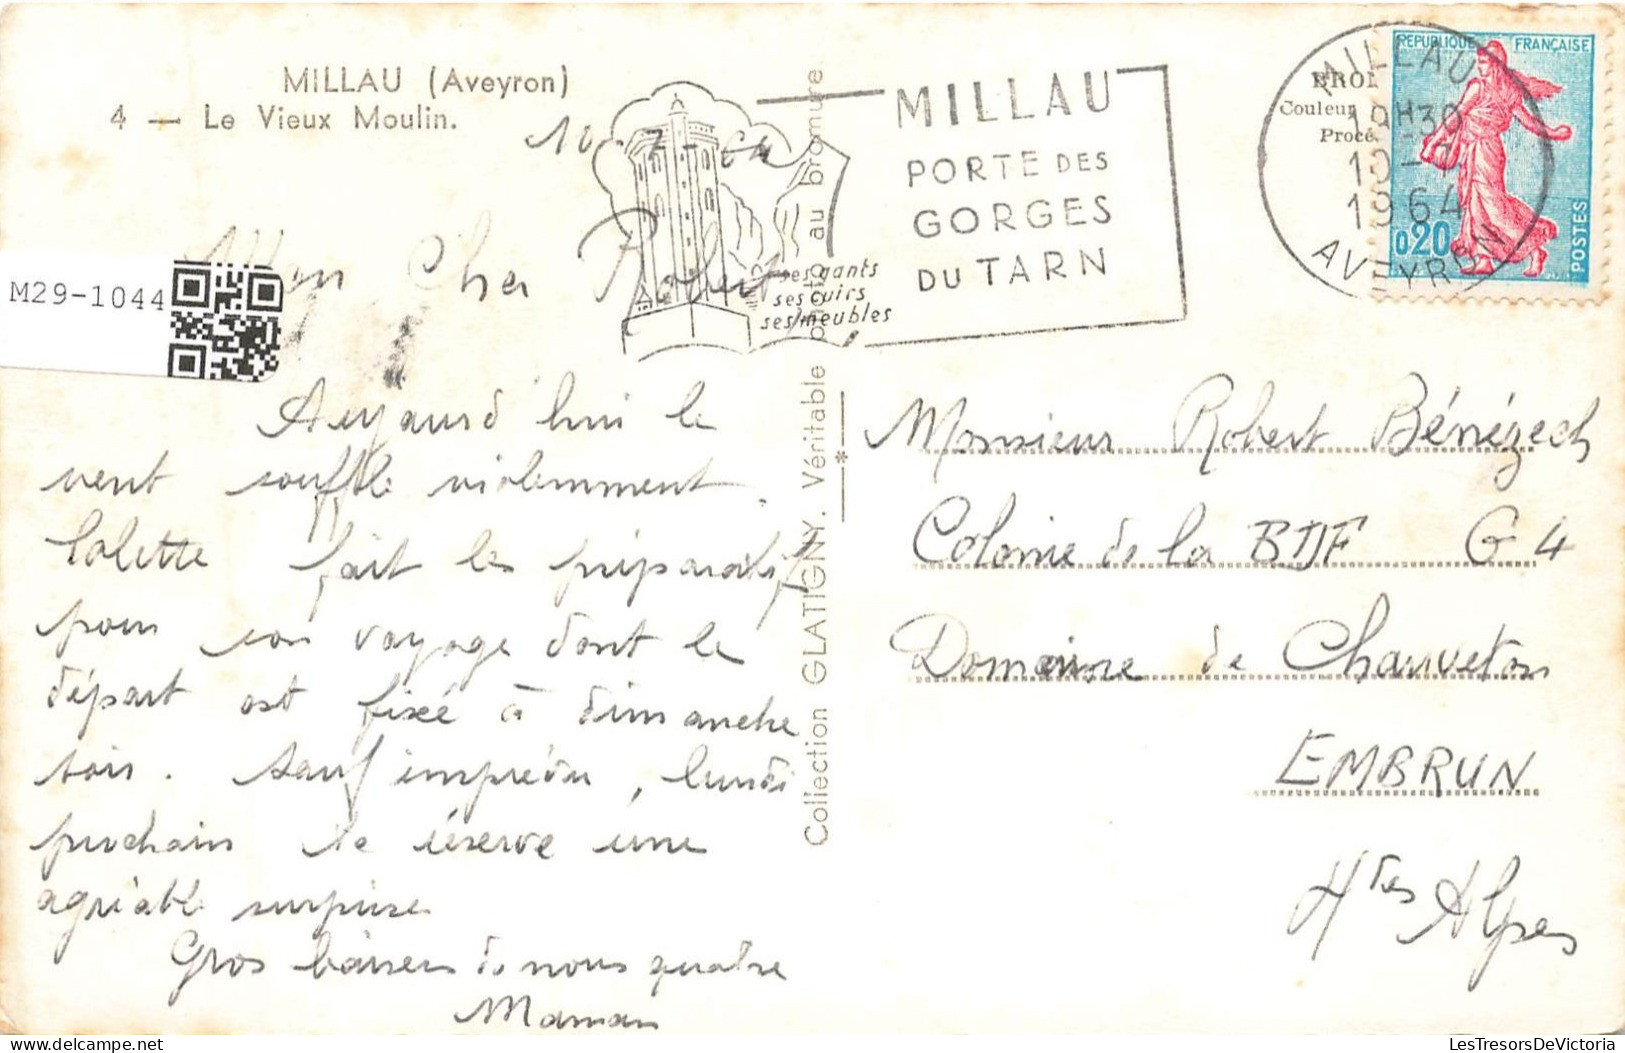 MILLAU (Aveyron)
4 — Le Vieux Moulin.
10-7-64
MILLAU
PORTE DES
GORGES
DU TARN
ses gants
ses cuirs
ses meubles
MILLAU
19H30
10-7
1964
AVEYRON
REPUBLIQUE FRANÇAISE
0,20
POSTES
Couleur
Procé
M29-1044
Mon Cher Robert
Aujourd'hui le
vent souffle violemment.
Lolette fait les préparatifs
pour son voyage dont le
départ est fixé à dimanche
soir. Sauf imprévu, lundi
prochain te réserve une
agréable surprise
Gros baisers de nous quatre
Maman
Collection GLATIGNY. Véritable photo au bromure
Monsieur Robert Bénézech
Colonie de la G4
Domaine de Chauveton
EMBRUN
Htes Alpes
delcampe.net
LesTresorsDeVictoria